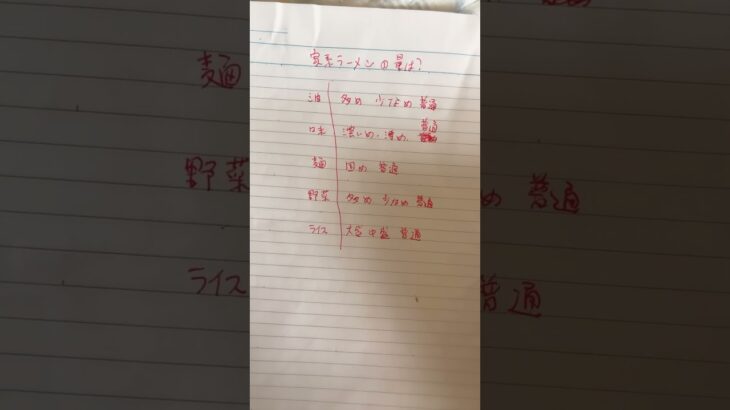 家系ラーメンの量は?
油 多め 少なめ 普通
味 濃いめ、薄め、普通
麺 固め 普通
野菜 多め 少なめ 普通
ライス 大盛 中盛 普通